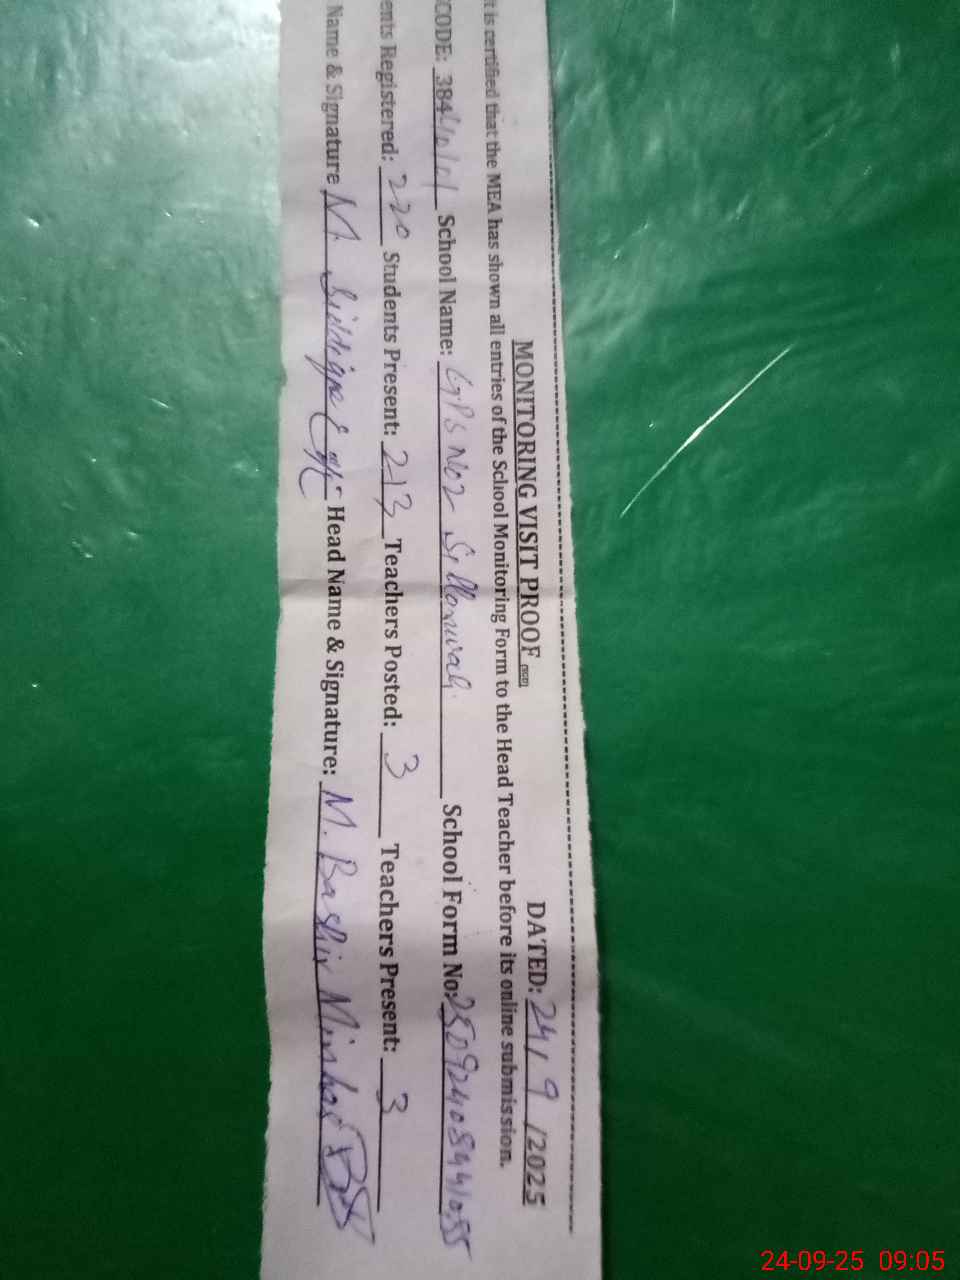 MONITORING VISIT PROOF DATED: 24/9/2025
t is certified that the MEA has shown all entries of the School Monitoring Form to the Head Teacher before its online submission.
CODE: 384 School Name: GPS No2 Sillanwali School Form No:
ents Registered: 220 Students Present: 213 Teachers Posted: 3 Teachers Present: 3
Name & Signature M. Siddique Head Name & Signature: M. Bashir Minhas
24-09-25 09:05